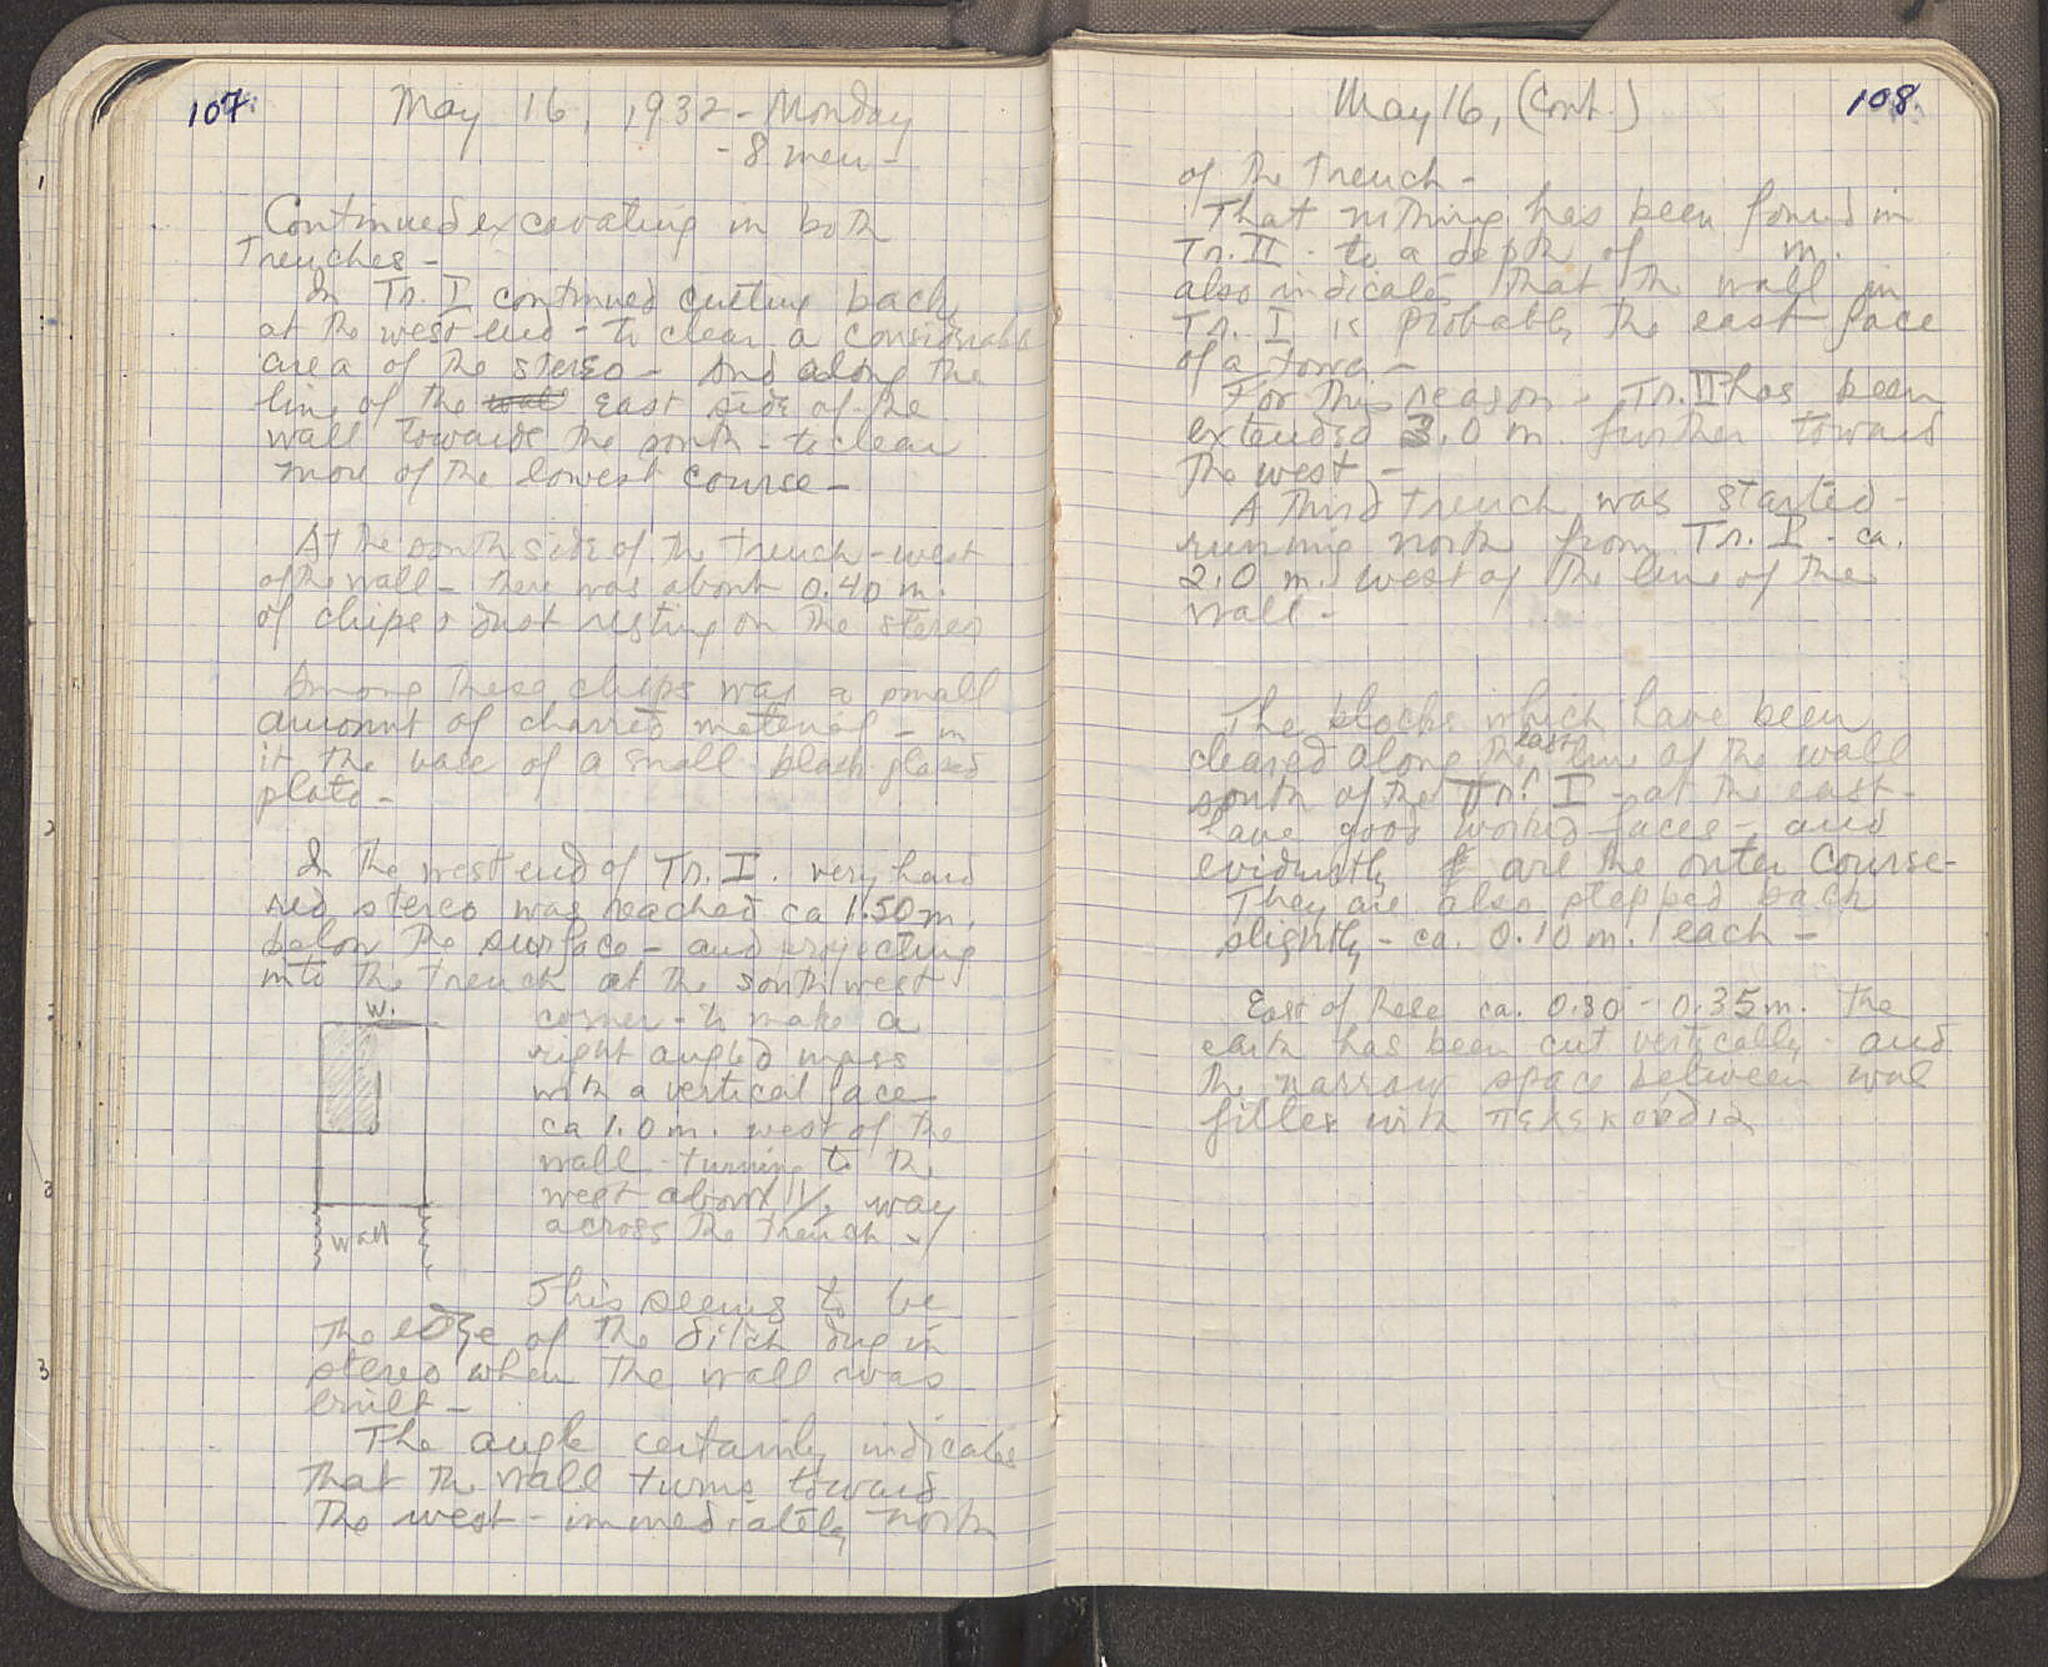 107.
May 16, 1932 - Monday
- 8 men -
Continued excavating in both
Trenches -
In Tr. I continued cutting back
at the west end - to clear a considerable
area of the stereo - and along the
line of the wall east side of the
wall towards the south - to clear
more of the lowest course -
At the south side of the trench - west
of the wall - there was about 0.40 m.
of chips & dust resting on the stereo
Among these chips was a small
amount of charred material - in
it the base of a small black glazed
plate -
In the west end of Tr. I. very hard
red stereo was reached ca 1.50 m.
below the surface - and projecting
into the trench at the south west
corner - to make a
right angled mass
with a vertical face
ca 1.0 m. west of the
wall - turning to the
west about way
across the trench
W.
wall
This seems to be
the edge of the ditch dug in
stereo when the wall was
built -
The angle certainly indicates
that the wall turns toward
the west - immediately north
108.
May 16, (Cont.)
of the trench -
That nothing has been found in
Tr. II - to a depth of m.
also indicates that the wall in
Tr. I is probably the east face
of a tower -
For this reason - Tr. II has been
extended 3.0 m. further toward
the west -
A third trench was started -
running north from Tr. I - ca.
2.0 m. west of the line of the
wall -
The blocks which have been
cleared along the east line of the wall
south of the Tr. I - at the east -
have good worked faces - and
evidently are the outer course -
They are also stepped back
slightly - ca. 0.10 m. each -
East of these ca. 0.30 - 0.35 m. the
earth has been cut vertically - and
the narrow space between was
filled with πελεκούδια